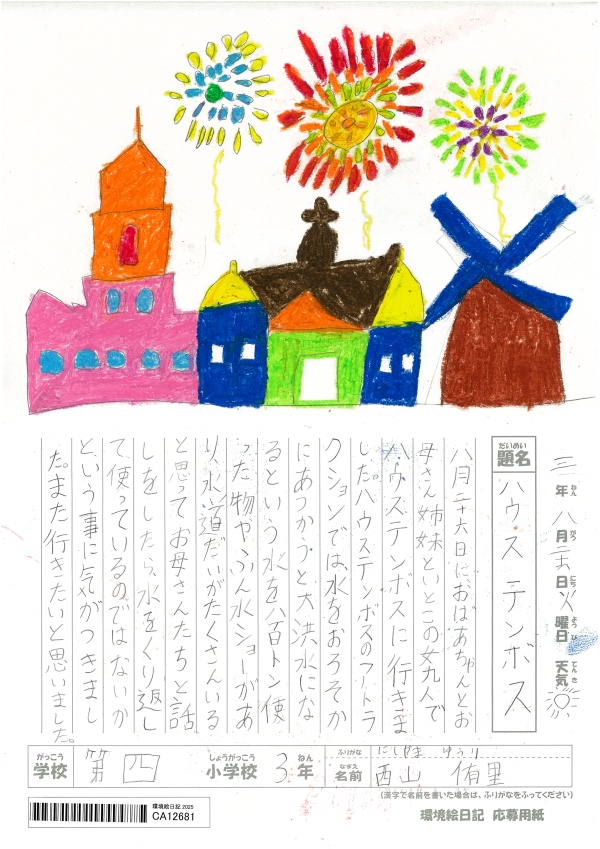 三年ねん 八月がつ 日にち 火曜日ようび 天気てんき
だいめい
題名 ハウステンボス
八月二十六日に、おばあちゃんとお
母さん姉妹といとこの女九人で
ハウステンボスに行きま
した。ハウステンボスのアートラ
クションでは、水をおろそか
にあつかうと大洪水にな
るという水を八百トン使
った物やふん水ショーがあ
り、水道だいがたくさんいる
と思ってお母さんたちと話
しをしたら、水をくり返し
て、使っているのではないか
という事に気がつきまし
た。また行きたいと思いました。
がっこう しょうがっこう ねん ふりがな にしやま ゆうり
学校 第四 小学校 3年 なまえ 名前 西山 侑里
(漢字で名前を書いた場合は、ふりがなをふってください)
環境絵日記 2025
CA12681
環境絵日記 応募用紙